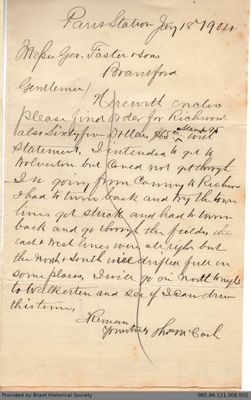 Paris Station Jany 18th 1904
Messrs Geo. Foster & Sons
Brantford
Gentlemen/
Herewith enclose
please find order for Richwood
also Sixty five Dollars $65 with
Statement, I intended to get to
Wolverton but could not get through
I in going from Canning to Richwood
I had to turn back and try the town
lines got stuck and had to turn
back and go through the fields the
east & West lines were all right but
the North & South all drifted full in
some places, I will go on north tonight
to Walkerton and see if I can drive
this time,
I Remain
Yours truly Thos McCosh
Provided by Brant Historical Society
985.86.121.008.002